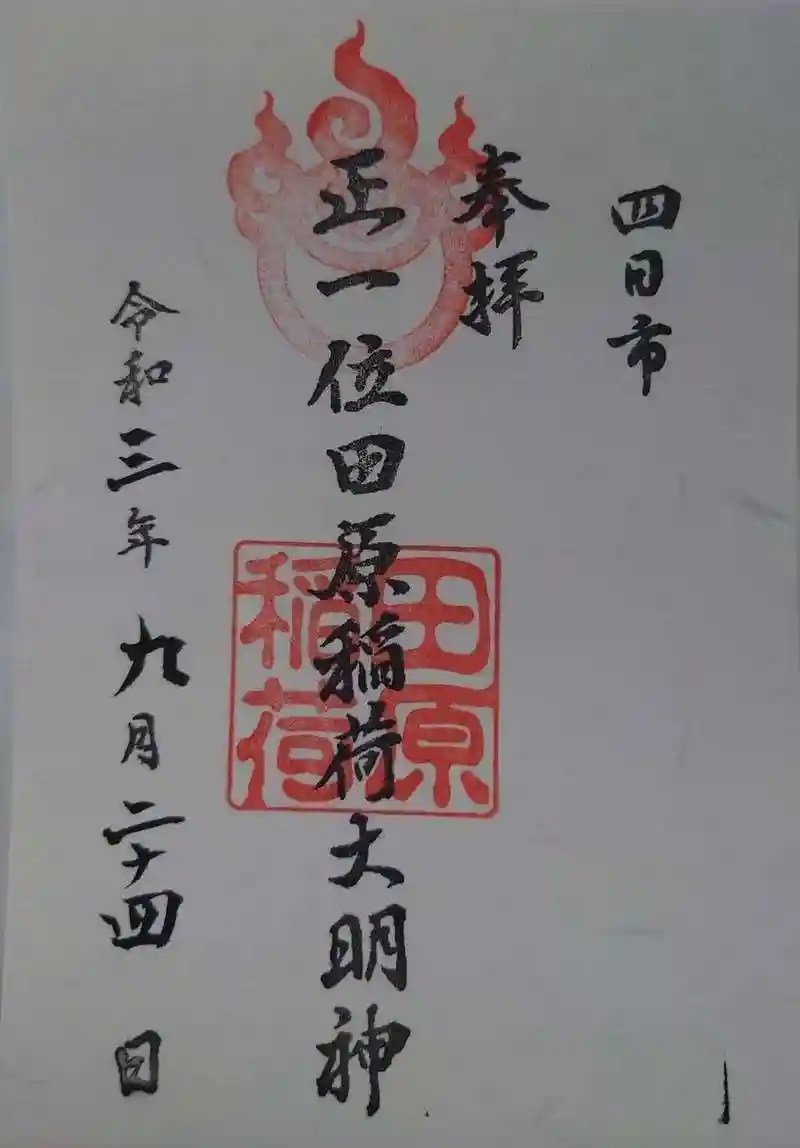 四日市
奉拝
正一位田原稲荷大明神
田原
稲荷
令和三年九月二十四日